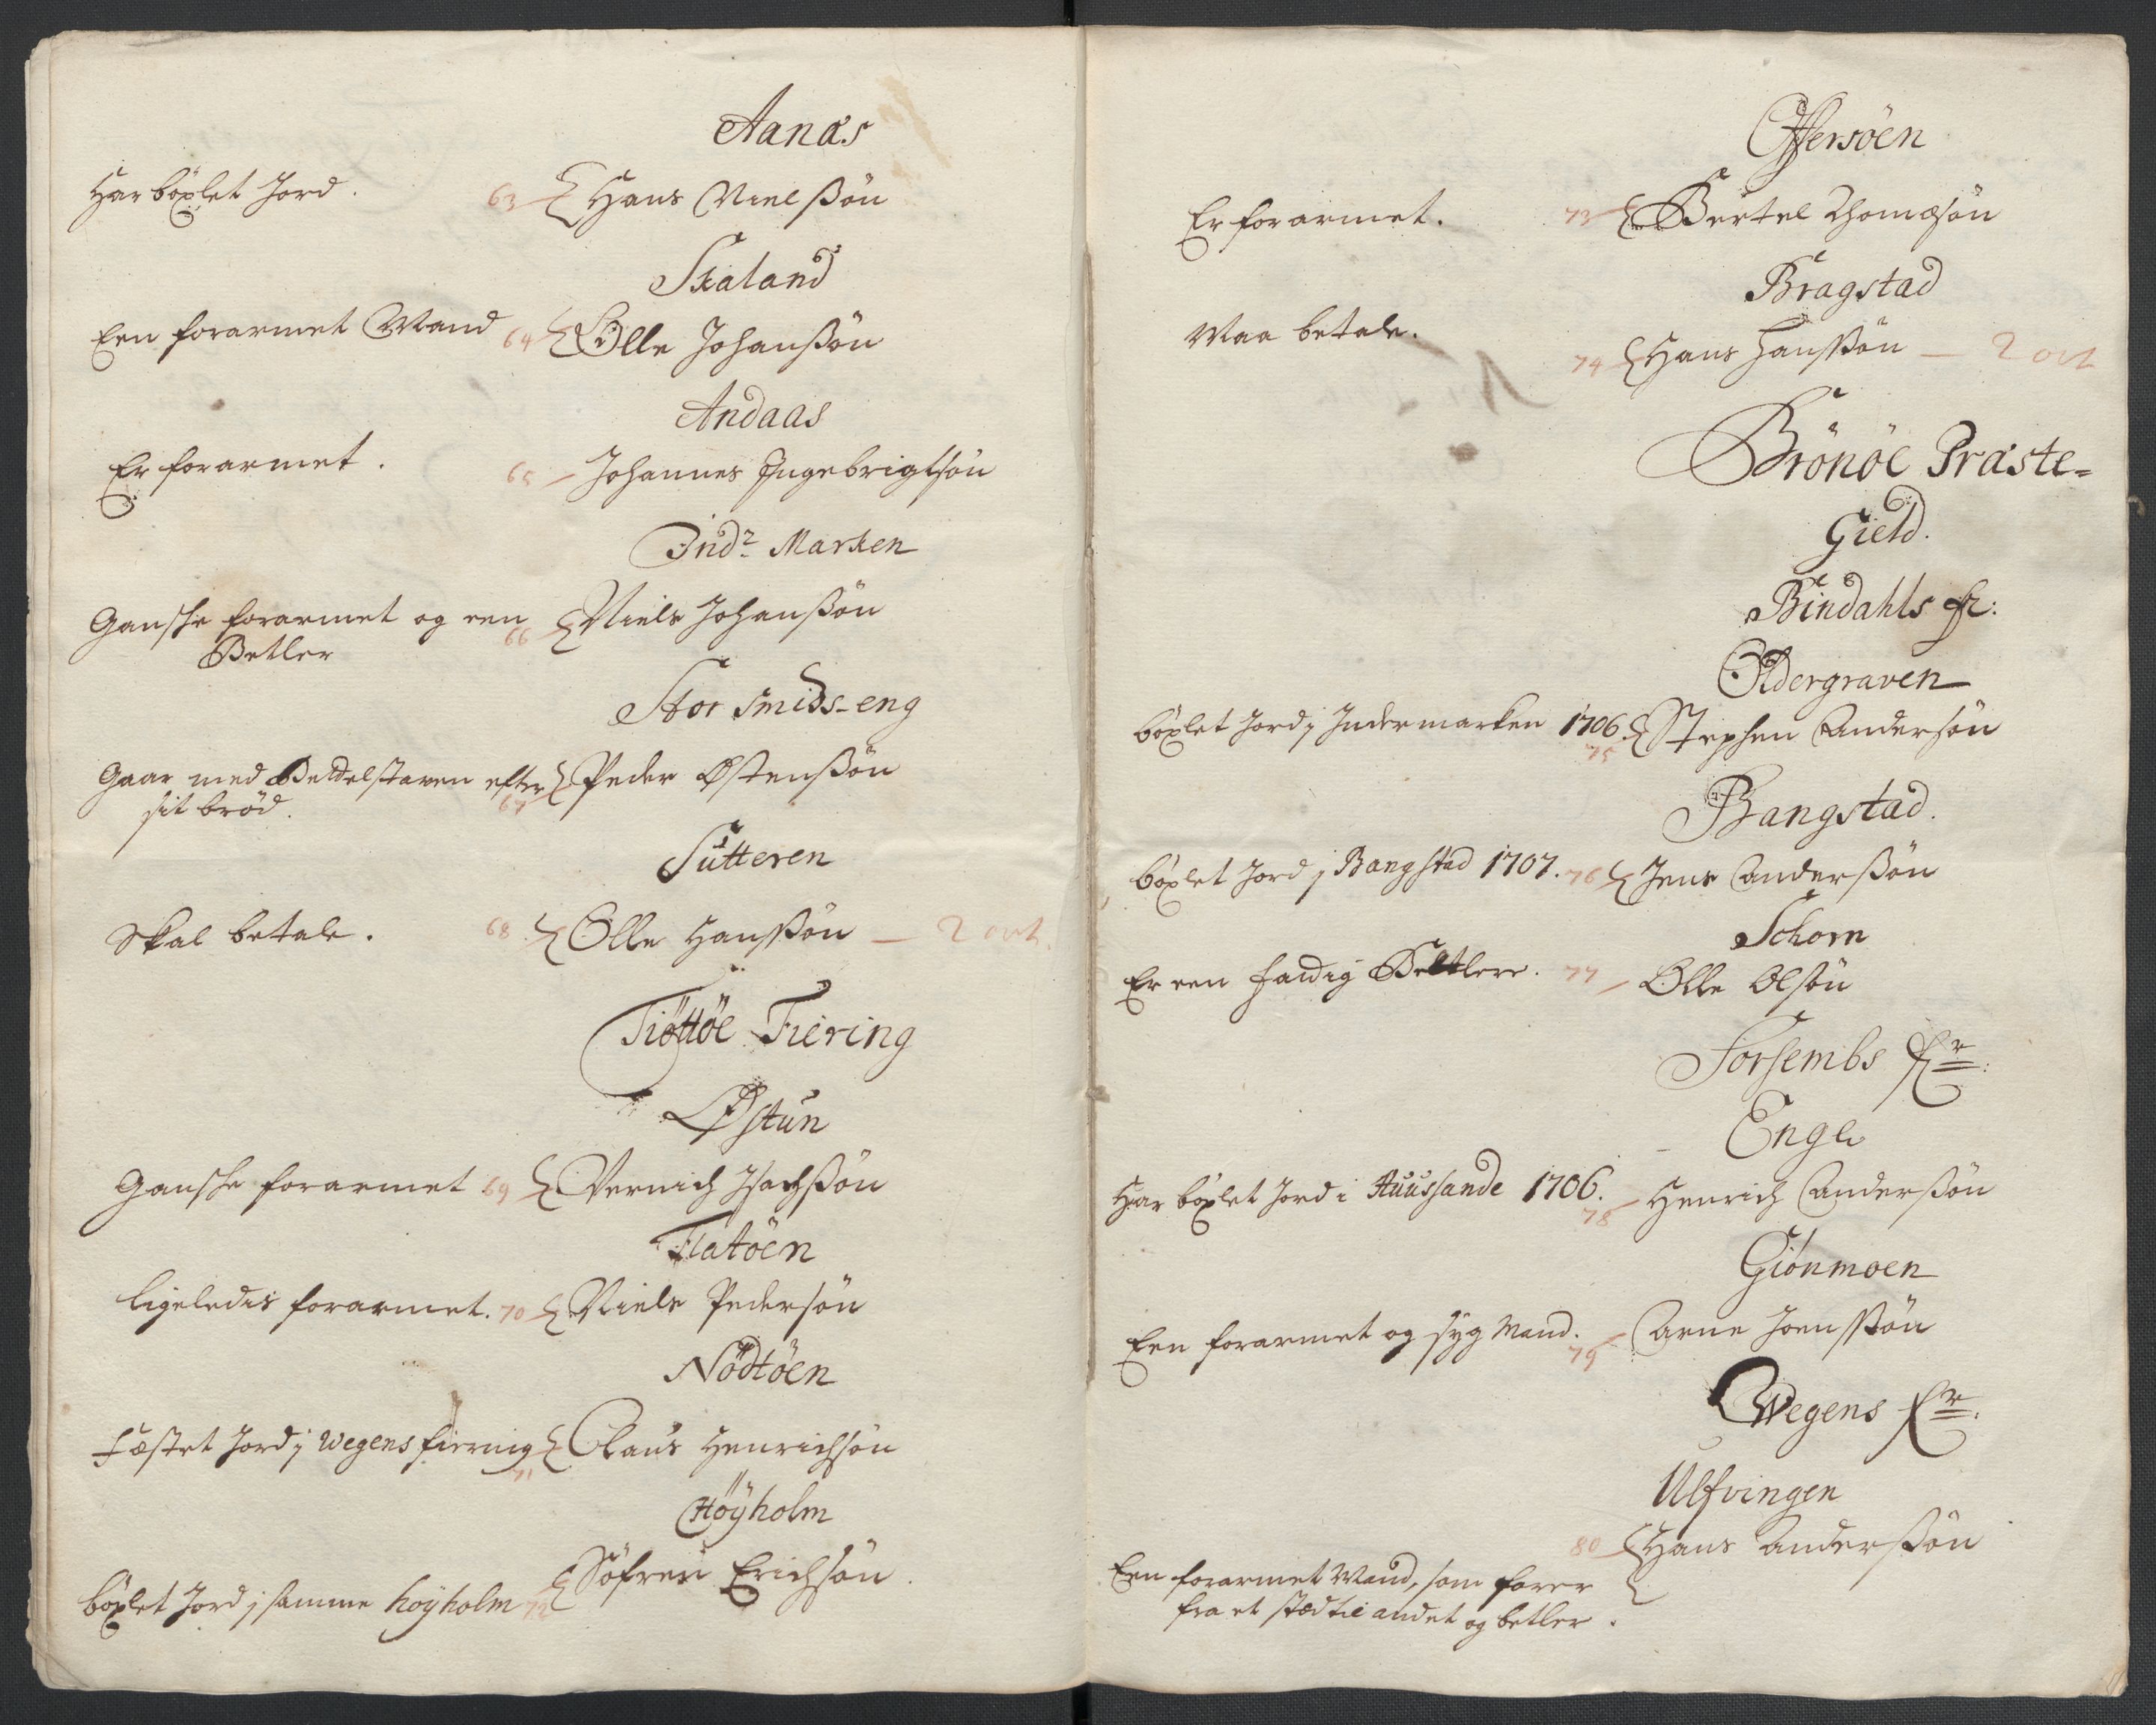 Aanæs
Har böxlet Jord. 63 Hans Nielßøn
Skaland
Een forarmet Mand 64 Olle Johanßøn
Andaas
Er forarmet. 65 Johannes Ingebrigtsøn
Indr Marken
Gansche forarmet og een 66 Niels Johanßøn
Betler
Stor Smids-eng
Gaar med Bettelstaven efter 67 Peder Østenßøn
sit brød.
Sutteren
Skal betale. 68 Olle Hanßøn — 2 ort.
Tiøttøe Fiering
Østun
Gansche forarmet 69 Vernich Isachßøn
Flatöen
Ligeledis forarmet. 70 Niels Pedersøn
Nödtöen
Fæstet Jord j Wegens fiering 71 Claus Henrichsøn
Höyholm
böxlet Jord j samme höyholm 72 Söfren Erichsøn.
Offersöen
Er forarmet. 73 Bertel Thomæsøn
Bragstad
Maa betale. 74 Hans Hanßøn — 2 ort
Brönöe Præste=
Gield.
Bindahls fr:
Oldergraven
böxlet Jord j Indermarken 1706. 75 Stephen Andersøn
Bangstad.
böxlet Jord j Bangstad 1707. 76 Jens Anderßøn
Schom
Er een fattig Bettlere. 77 Olle Olsøn
Forsembs Fr:
Enge
Har böxlet Jord i Auussande 1706. 78 Henrich Anderßøn
Giönmoen
Een forarmet og syg Mand. 79 Arne Joenßøn
Wegens Fr:
Ulfvingen
80 Hans Anderßøn
Een forarmet Mand, som farer
fra et stæd til andet og betler.